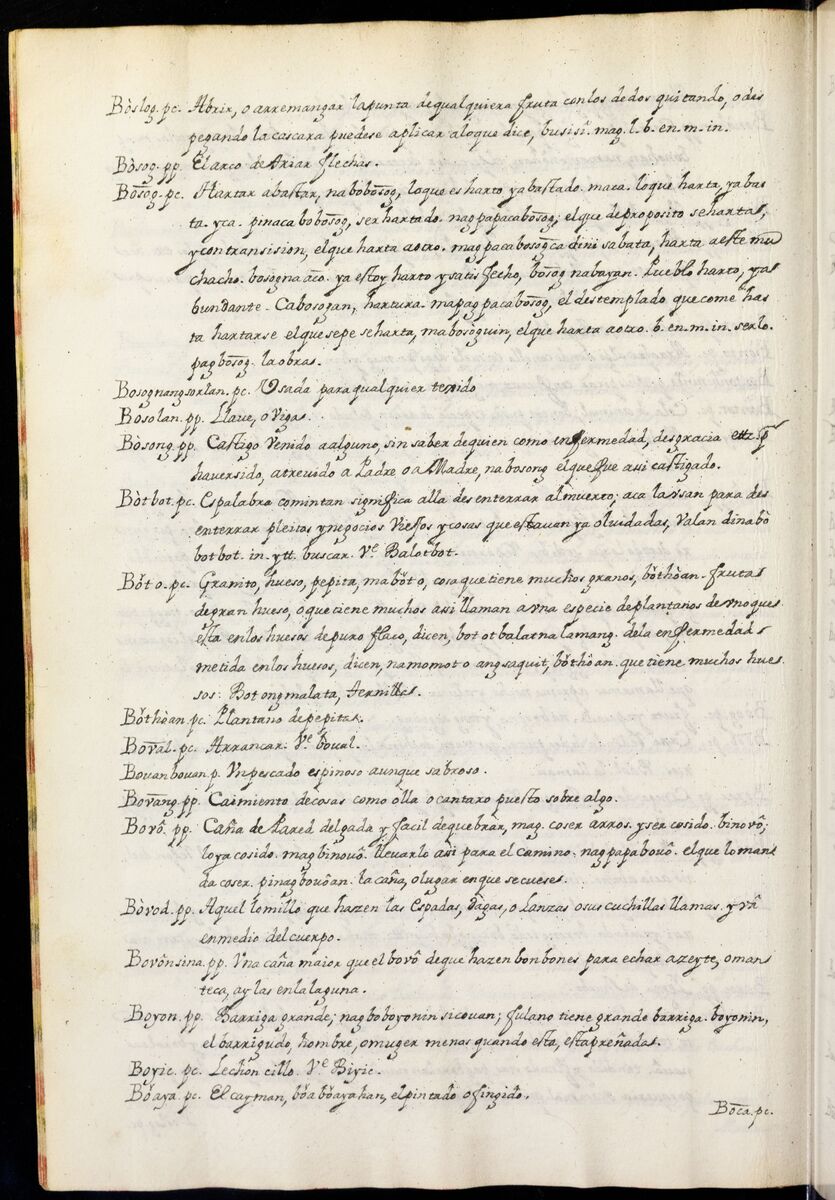 Bòslog. pc. Abrir, o arremangar lapunta dequalquiera fruta conlos dedos quitando, o des
pegando la cascara puedese aplicar aloque dice, busisi. mag. l. b. en. m. in.
Bòsog. pp. El arco de tirar flechas.
Bosog. pc. Hartar abastar, nabobosog, loque es harto yabastado. maca. loque harta, yabas
ta. yca. pinaca bobosog, ser hartado. nagpapacabosog; elque deproposito seharta,
ycontransision, elque harta aotro. magpacabosogca dini sabata, harta aeste mu
chacho. bosogna aco. ya estoy harto ysatisfecho, bosog nabayan. Pueblo harto, ya
bundante. Cabosogan, hartura. mapagpacabosog, el destemplado que come has
ta hartarse elquesepe seharta, mabosoguin, elque harta aotro. b. en. m. in. serlo.
pagbosog. la obras.
Bosognangsorlan. pc. Usada paraqualquier texido
Bòsolan. pp. Llave, o vigas.
Bòsong. pp. Castigo venido aalguno, sin saber dequien como enfermedad, desgracia etts. p
haversido, atrevido a Padre o a Madre, nabosong elquefue asi castigado.
Bòtbot. pc. Espalabra comintan significa alla desenterrar almuerto; aca lavsan para des
enterrar pleitos ynegocios viejos ycosas que estavan ya oluidadas, valan dinabò
botbot. in. ytt. buscar. Ve. Balotbot.
Bŏto. pc. Granito, hueso, pepita, mabŏto, cosa que tiene muchos granos, bŏthòan. frutas
degran hueso, oque tiene muchos asi llaman avna especie deplantanos devnoques
esta enlos huesos depuro flaco, dicen, botot balatna lamang. dela enfermedads
metida enlos huesos, dicen, namomoto angsaquit, bŏthŏan. que tiene muchos hue
sos: Botongmalata, ternillas.
Bŏthòan. pc. Plantano depepitas.
Boval. pc. Arrancar. Ve. boual.
Bouanbouan. p. Vn pescado espinoso aunque sabroso.
Bovang. pp. Caimiento decosas como olla o cantaro puesto sobre algo.
Bovô. pp. Caña de Pared delgada y facil dequebrar, mag. coser arros. yser cosido. binovô;
loya cosido. magbinouô. llevarlo asi para el camino. nagpapabouô. elque loman
da coser. pinagbouôan. la caña, olugar enque secueses.
Bòvod. pp. Aquel lomillo que hazen las Espadas, dàgas, o Lanzas osus cuchillas llamas. y và
enmedio del cuerpo.
Bovônsina. pp. Vna caña maior que el bovô deque hazen bonbones para echar azeyte, oman
teca, ay las enlalaguna.
Boyon. pp. Barriga grande; nagboboyonin sicouan; fulano tiene grande barriga. boyonin,
el barrigudo, hombre, omuger menos quando esta, estapreñadas.
Boyic. pc. Lechoncillo. Ve. Biyic.
Bŏaya. pc. El cayman, bŏabŏayahan, elpintado ofingido.
Boca. pc.